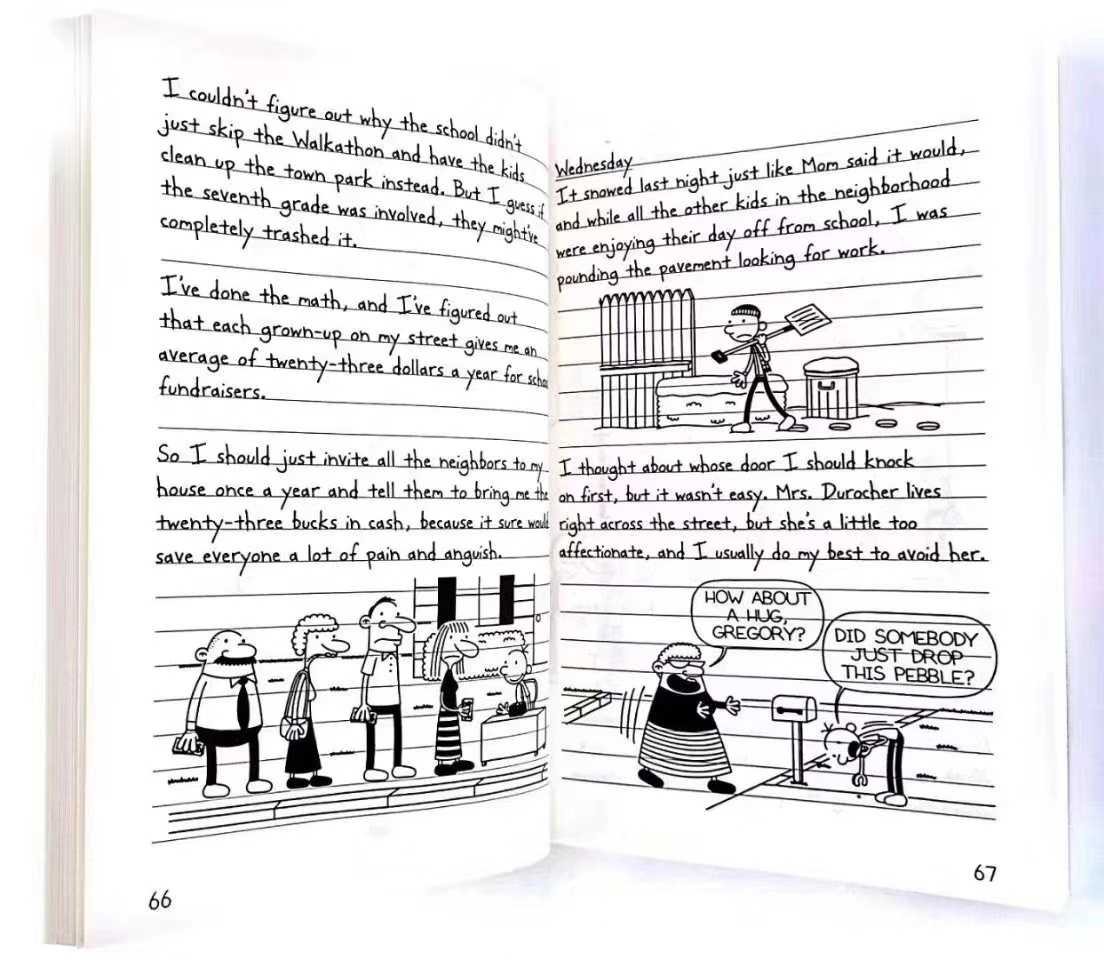 I couldn't figure out why the school didn't
just skip the Walkathon and have the kids
clean up the town park instead. But I guess if
the seventh grade was involved, they might've
completely trashed it.
I've done the math, and I've figured out
that each grown-up on my street gives me an
average of twenty-three dollars a year for
fundraisers.
So I should just invite all the neighbors to my
house once a year and tell them to bring me the
twenty-three bucks in cash, because it sure would
save everyone a lot of pain and anguish.
66
Wednesday
It snowed last night just like Mom said it would,
and while all the other kids in the neighborhood
were enjoying their day off from school, I was
pounding the pavement looking for work.
I thought about whose door I should knock
on first, but it wasn't easy. Mrs. Durocher lives
right across the street, but she's a little too
affectionate, and I usually do my best to avoid her.
HOW ABOUT
A HUG,
GREGORY?
DID SOMEBODY
JUST DROP
THIS PEBBLE?
67